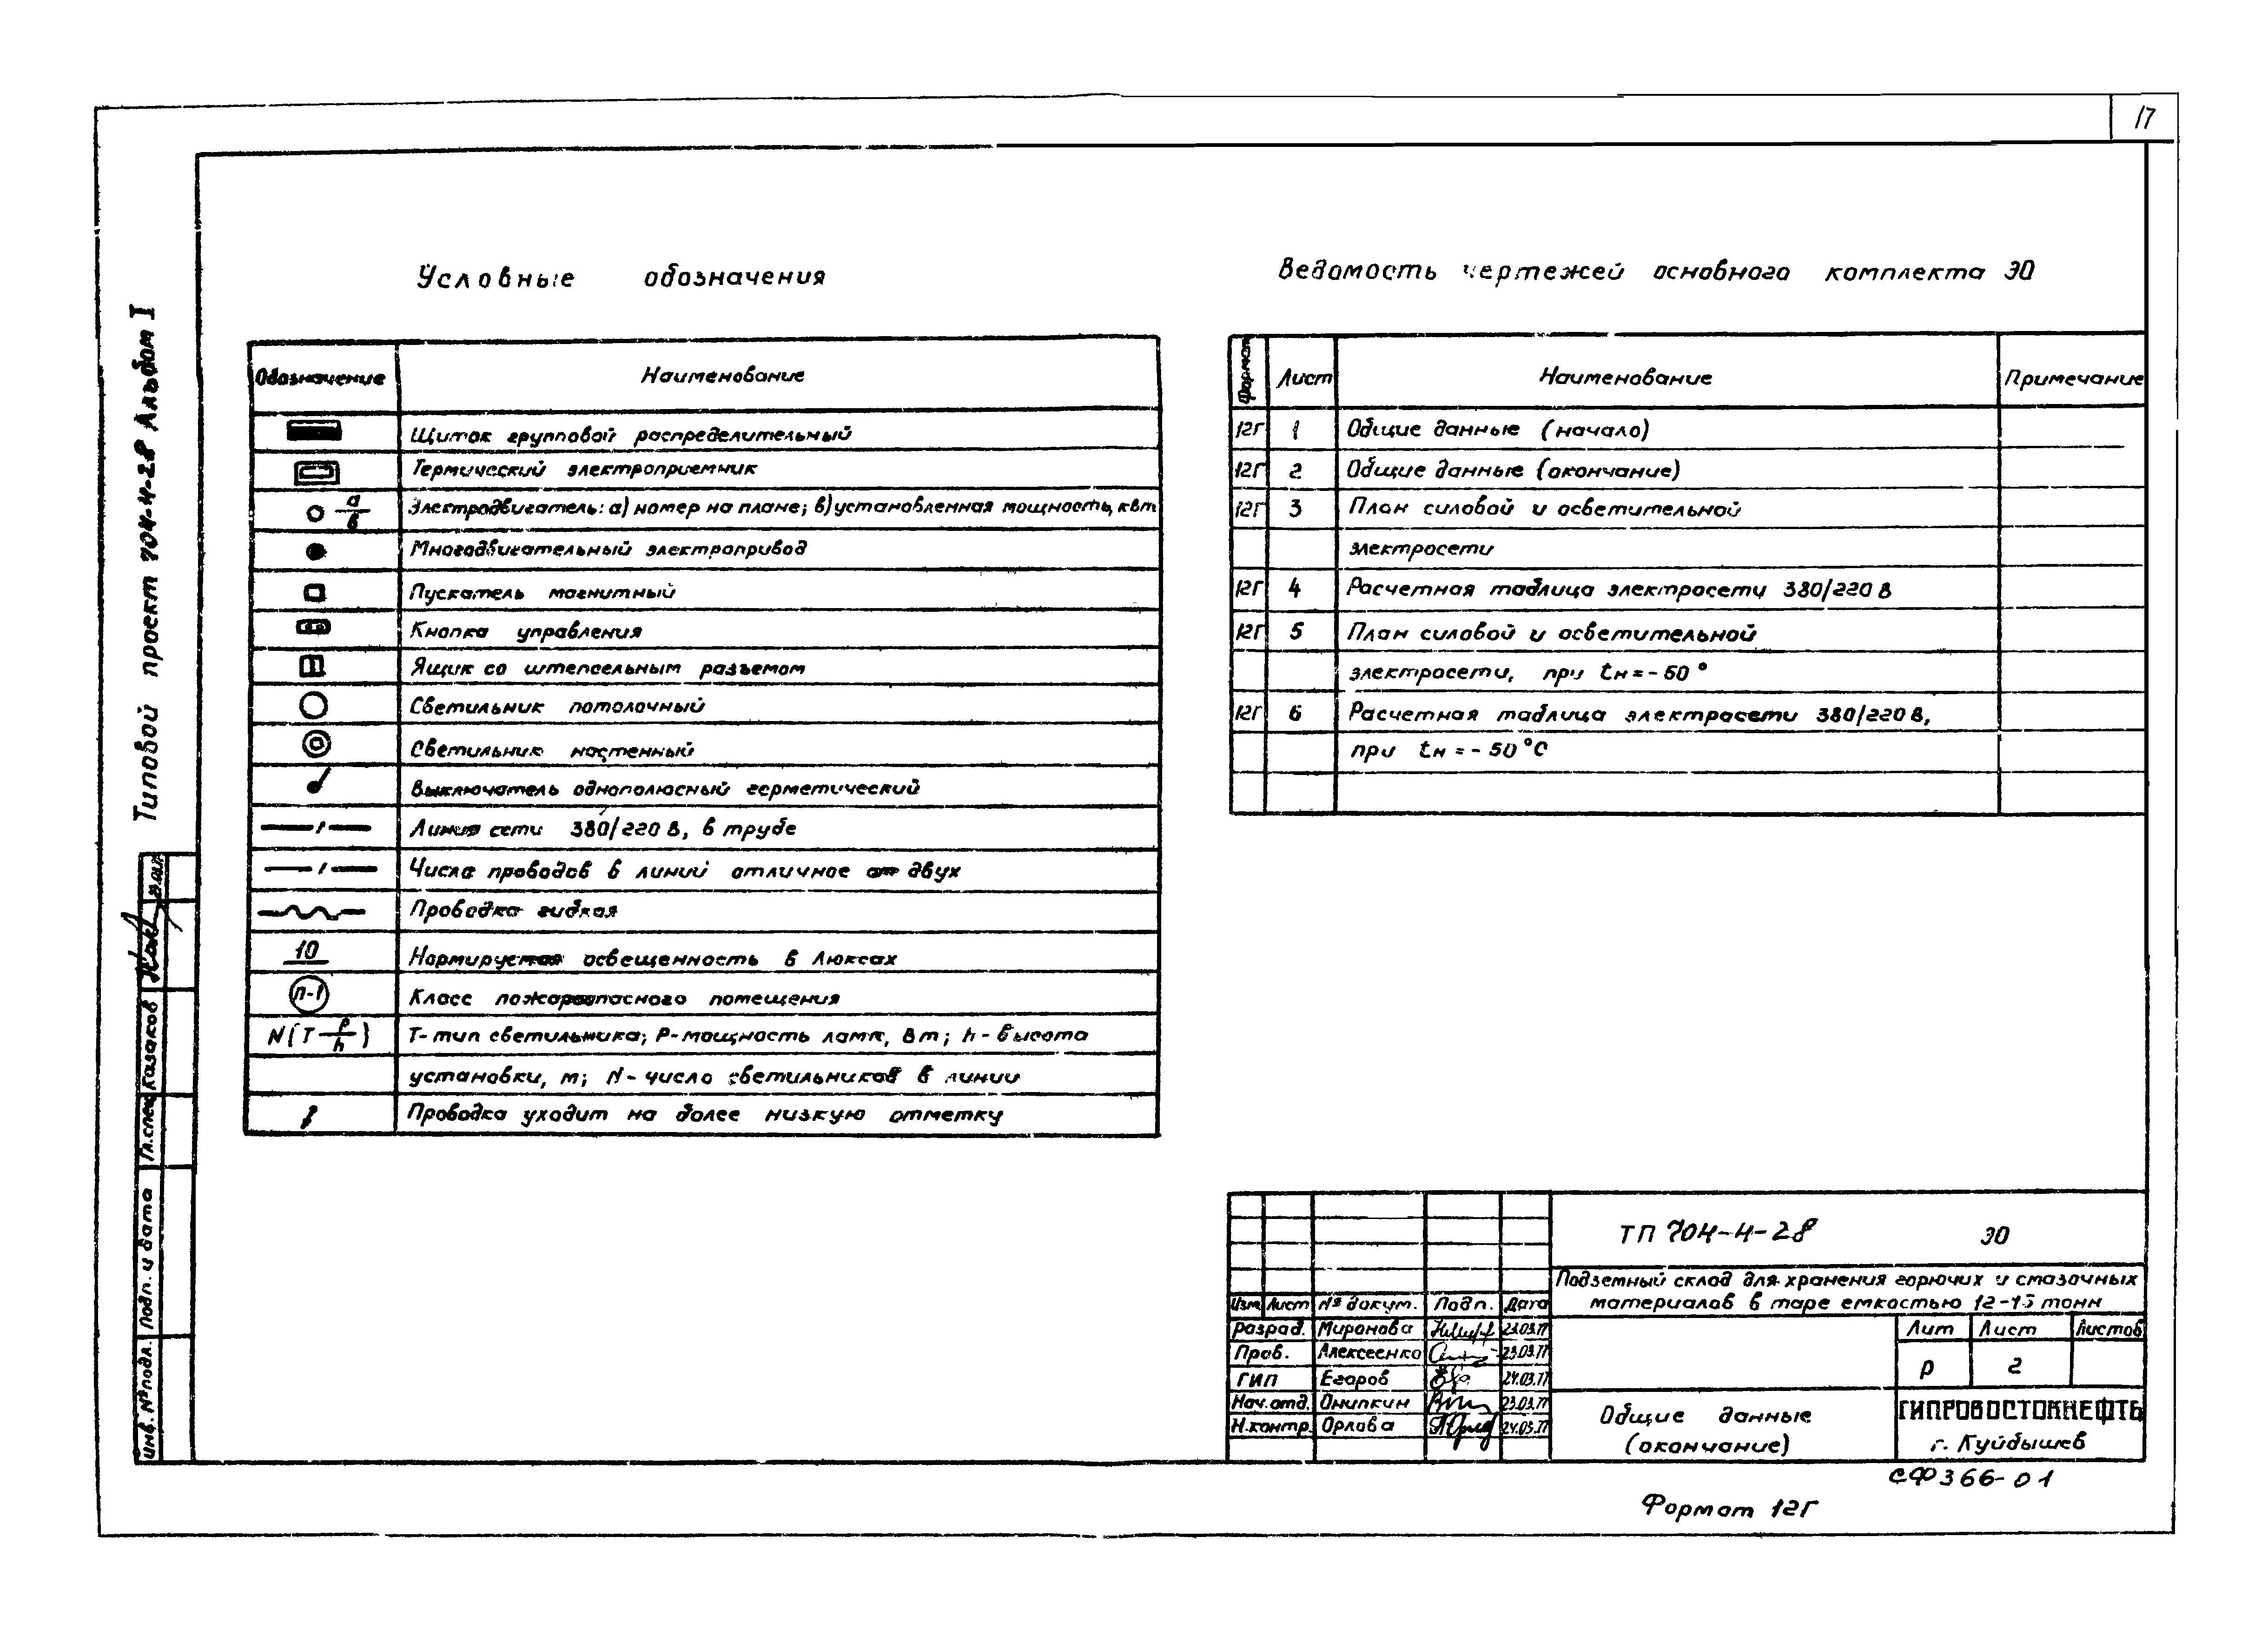 17
Типовой проект 704-4-28 Альбом I
Условные обозначения
Обозначение Наименование
Щиток групповой распределительный
Термический электроприемник
а/в Электродвигатель: а) номер на плане; в) установленная мощность, квт
Многодвигательный электропривод
Пускатель магнитный
Кнопка управления
Ящик со штепсельным разъемом
Светильник потолочный
Светильник настенный
Выключатель однополюсный герметический
Линия сети 380/220 В, в трубе
Числа проводов в линий отличное от двух
Проводка гибкая
10 Нормируемая освещенность в люксах
П-I Класс пожароопасного помещения
N(T P/h) Т-тип светильника; Р-мощность ламп, Вт; h-высота
установки, м; N-число светильников в линии
Проводка уходит на более низкую отметку
Ведомость чертежей основного комплекта ЭО
Формат Лист Наименование Примечание
12Г 1 Общие данные (начало)
12Г 2 Общие данные (окончание)
12Г 3 План силовой и осветительной
электросети
12Г 4 Расчетная таблица электросети 380/220 В
12Г 5 План силовой и осветительной
электросети, при tн=-50°
12Г 6 Расчетная таблица электросети 380/220 В,
при tн=-50°С
Гл.спец Казаков
Инв. № подл. Подп. и дата
ТП 704-4-28 ЭО
Подземный склад для хранения горючих и смазочных
материалов в таре емкостью 12-15 тонн
Изм Лист № докум. Подп. Дата
Разраб. Миронова 23.03.77
Пров. Алексеенко 23.03.77
ГИП Егоров 24.03.77
Нач.отд. Онипкин 23.03.77
Н.контр. Орлова 24.03.77
Лит Лист Листов
Р 2
Общие данные
(окончание)
ГИПРОВОСТОКНЕФТЬ
г. Куйбышев
СФ366-01
Формат 12Г